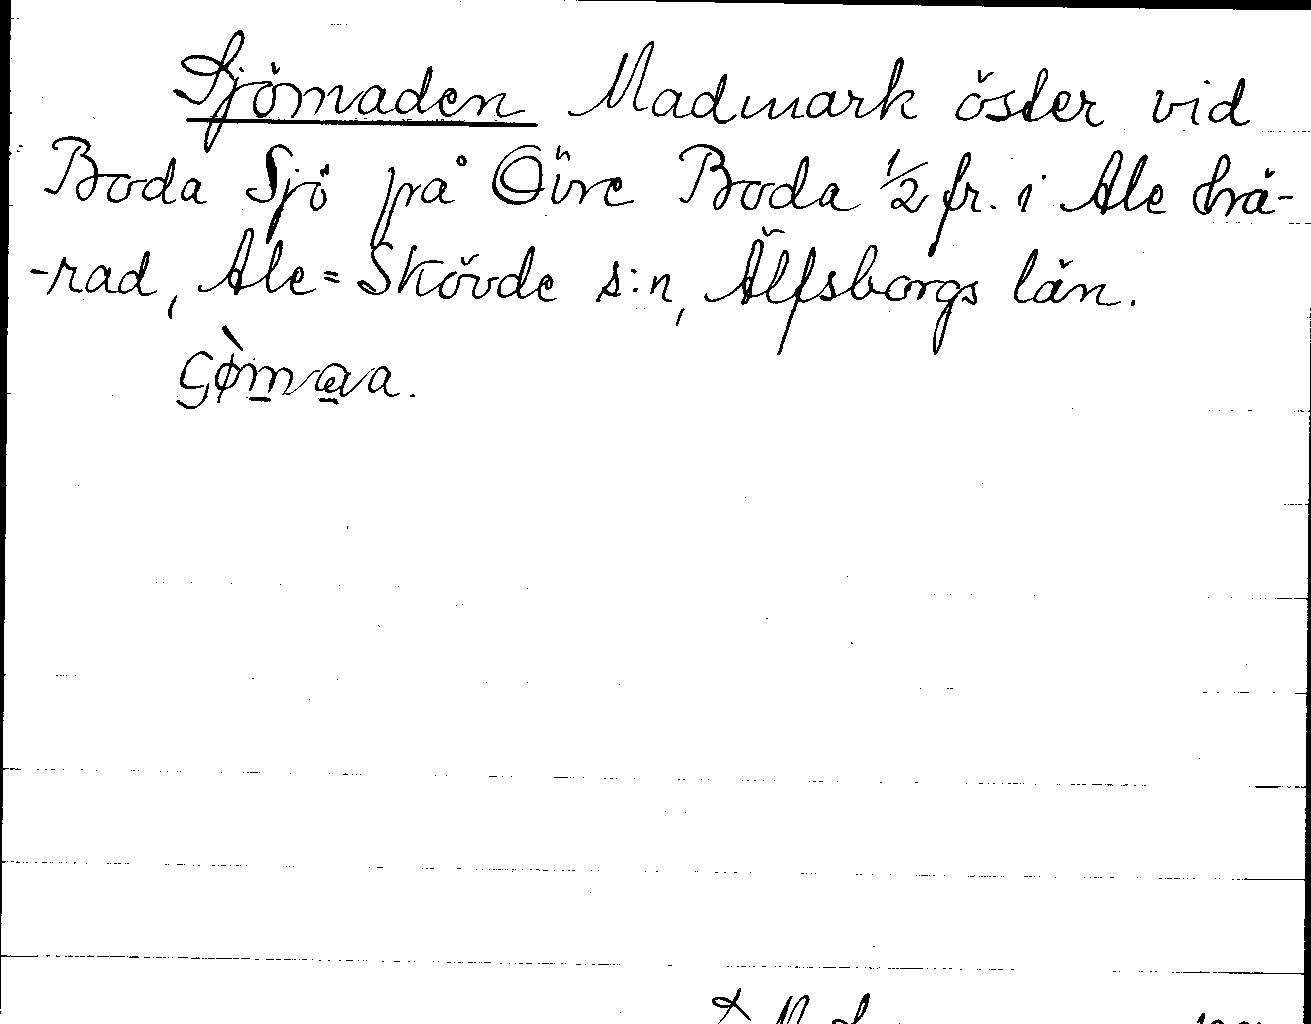 Sjömaden Madmark öster vid
Boda Sjö på Öfre Boda 1/2 fr. i Ale hä-
-rad, Ale=Skövde s:n, Älfsborgs län.